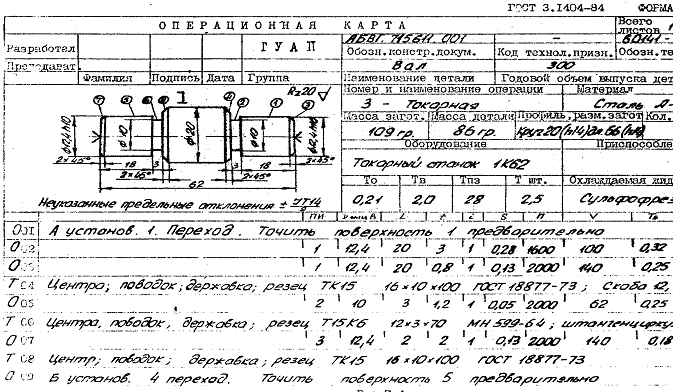 ГОСТ 3.1404-84 ФОРМА
ОПЕРАЦИОННАЯ КАРТА Всего листов 1
Разработал ГУАП АБВГ. 715611. 001 – 60141-
Обозн. констр. докум. Код технол. призн. Обозн. те
Преподават. Вал 300
Фамилия Подпись Дата Группа Наименование детали Годовой объем выпуска дет
Номер и наименование операции Материал
Rz20
3 - Токарная Сталь
Масса загот. Масса детали Профиль, разм. загот Кол.
109 гр. 86 гр. Круг 20 (h14)
Оборудование Приспособле
Токарный станок 1К62
То Тв Тпз Т шт. Охлаждаемая жид
0,21 2,0 28 2,5 Сульфофрез
1
φ12,4h10 φ10 φ20 φ10 φ12,4h10
2×45° 18 3 2×45° 3 18 2×45°
62
Неуказанные предельные отклонения ± JT14/2
ПИ
О 01 А установ. 1. Переход. Точить поверхность 1 предварительно
О 02 1 12,4 20 3 1 0,28 1600 100 0,32
О 03 1 12,4 20 0,8 1 0,13 2000 140 0,25
Т 04 Центра; поводок; державка; резец ТК15 16×10×100 ГОСТ 18877-73; Скоба 12,
О 05 2 10 3 1,2 1 0,05 2000 62 0,25
Т 06 Центра, поводок, державка; резец Т15К6 12×3×70 МН 599-64; штангенцирку
О 07 3 12,4 2 2 1 0,13 2000 140 0,18
Т 08 Центр; поводок; державка; резец ТК15 16×10×100 ГОСТ 18877-73
О 09 Б установ. 4 переход. Точить поверхность 5 предварительно